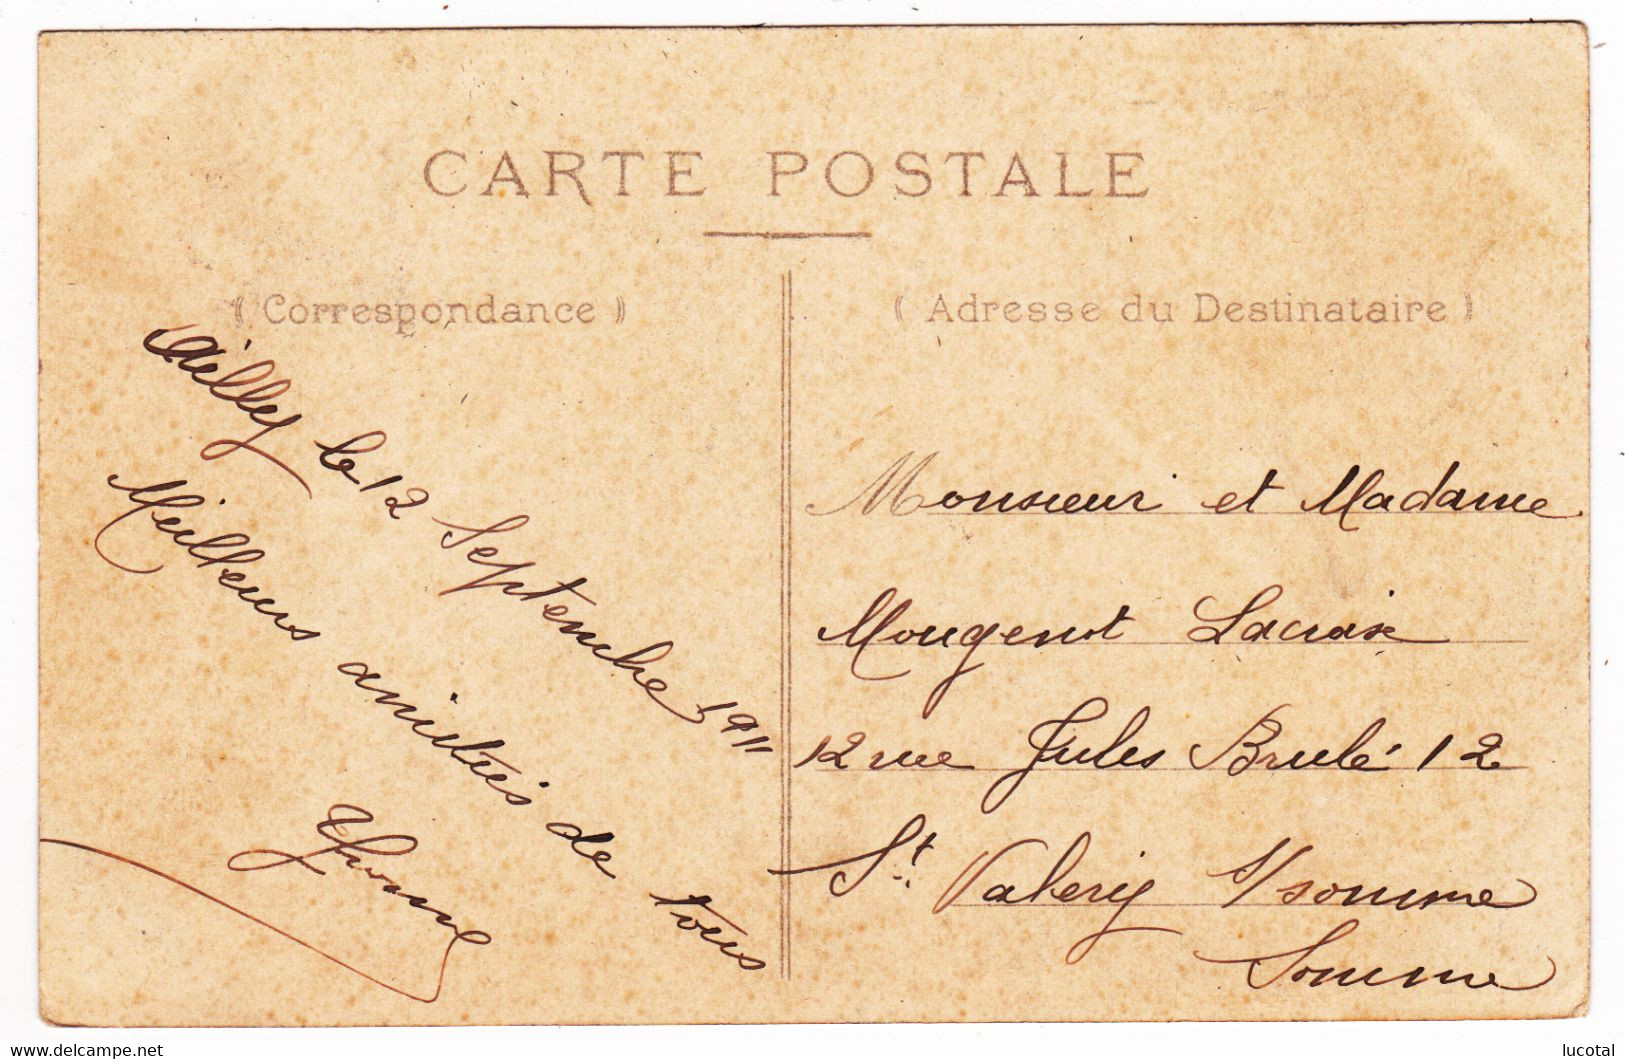 CARTE POSTALE
( Correspondance )
Ailly le 12 Septembre 1911
Meilleurs amitiés de tous
Yvonne
( Adresse du Destinataire )
Monsieur et Madame
Mougenot Lacroix
12 rue Jules Brulé 12
St. Valery s/somme
Somme
www.delcampe.net
lucotal